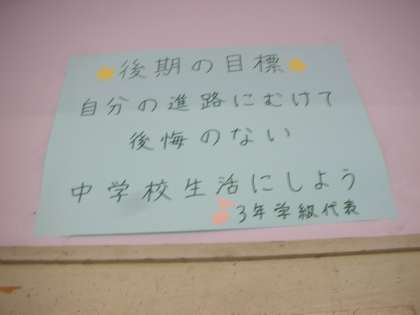 後期の目標
自分の進路にむけて
後悔のない
中学校生活にしよう
3年学級代表